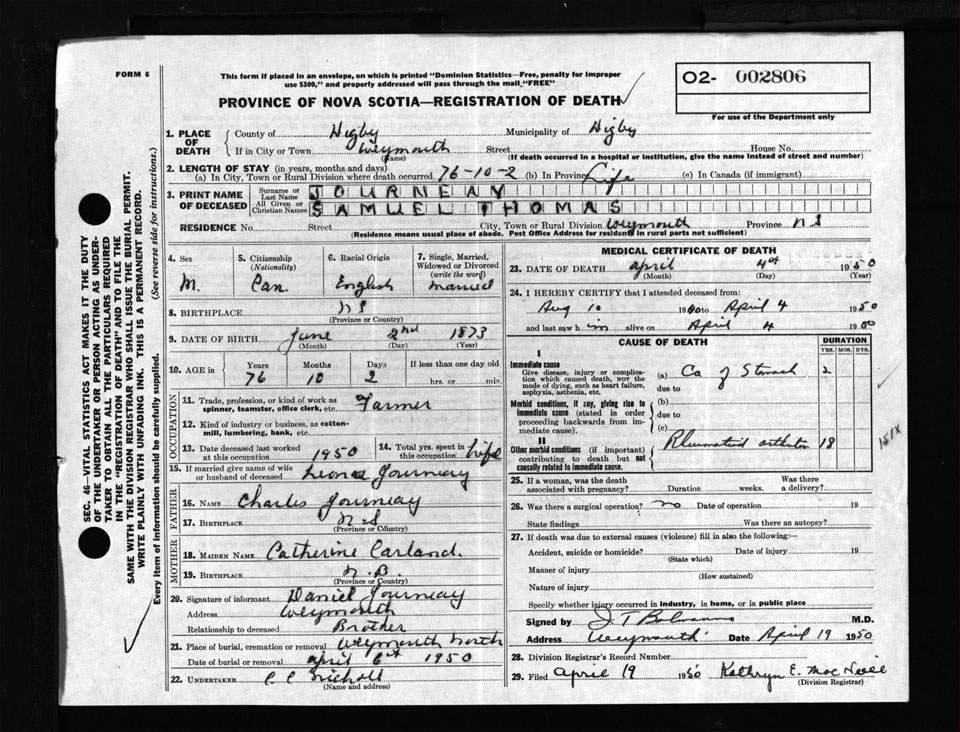 FORM 6
This form if placed in an envelope, on which is printed "Dominion Statistics—Free, penalty for improper
use $300," and properly addressed will pass through the mail "FREE"
O2- 002806
PROVINCE OF NOVA SCOTIA—REGISTRATION OF DEATH
For use of the Department only
SEC. 46—VITAL STATISTICS ACT MAKES IT THE DUTY
OF THE UNDERTAKER OR PERSON ACTING AS UNDER-
TAKER TO OBTAIN ALL THE PARTICULARS REQUIRED
IN THE "REGISTRATION OF DEATH" AND TO FILE THE
SAME WITH THE DIVISION REGISTRAR WHO SHALL ISSUE THE BURIAL PERMIT.
WRITE PLAINLY WITH UNFADING INK. THIS IS A PERMANENT RECORD.
Every item of information should be carefully supplied. (See reverse side for instructions.)
1. PLACE OF DEATH County of Digby Municipality of Digby
If in City or Town Weymouth (Name) Street House No.
(If death occurred in a hospital or institution, give the name instead of street and number)
2. LENGTH OF STAY (in years, months and days)
(a) In City, Town or Rural Division where death occurred 76-10-2 (b) In Province Life (c) In Canada (if immigrant)
3. PRINT NAME OF DECEASED Surname or Last Name JOURNEAY
All Given or Christian Names SAMUEL THOMAS
RESIDENCE No. Street City, Town or Rural Division Weymouth Province N S
(Residence means usual place of abode. Post Office Address for residents in rural parts not sufficient)
4. Sex M.
5. Citizenship (Nationality) Can.
6. Racial Origin English
7. Single, Married, Widowed or Divorced (write the word) married
8. BIRTHPLACE N S
(Province or Country)
9. DATE OF BIRTH June 2nd 1873
(Month) (Day) (Year)
10. AGE in Years Months Days If less than one day old
76 10 2 hrs. or min.
OCCUPATION
11. Trade, profession, or kind of work as spinner, teamster, office clerk, etc. Farmer
12. Kind of industry or business, as cotton-mill, lumbering, bank, etc.
13. Date deceased last worked at this occupation 1950
14. Total yrs. spent in this occupation Life
15. If married give name of wife or husband of deceased Journeay
FATHER
16. NAME Charles Journeay
17. BIRTHPLACE N S
(Province or Country)
MOTHER
18. MAIDEN NAME Catherine Carland.
19. BIRTHPLACE N.B.
(Province or Country)
20. Signature of informant Daniel Journeay
Address Weymouth
Relationship to deceased Brother
21. Place of burial, cremation or removal Weymouth North
Date of burial or removal April 6th 1950
22. UNDERTAKER C C Nicholl
(Name and address)
MEDICAL CERTIFICATE OF DEATH
23. DATE OF DEATH April 4th 1950
(Month) (Day) (Year)
24. I HEREBY CERTIFY that I attended deceased from:
Aug 10 to April 4 1950
and last saw him alive on April 4 1950
CAUSE OF DEATH
DURATION
YRS. MOS. DYS.
I
Immediate cause
Give disease, injury or complication which caused death, not the mode of dying, such as heart failure, asphyxia, asthenia, etc.
(a) Ca of Stomach 2
due to
Morbid conditions, if any, giving rise to immediate cause (stated in order proceeding backwards from immediate cause).
(b)
due to
(c)
II
Other morbid conditions (if important) contributing to death but not causally related to immediate cause.
Rheumatoid arthritis 18
151X
25. If a woman, was the death associated with pregnancy? Duration weeks. Was there a delivery?
26. Was there a surgical operation? no Date of operation 19
State findings Was there an autopsy?
27. If death was due to external causes (violence) fill in also the following:—
Accident, suicide or homicide? Date of injury 19
(State which)
Manner of injury
(How sustained)
Nature of injury
Specify whether injury occurred in industry, in home, or in public place
Signed by M.D.
Address Weymouth Date April 19 1950
28. Division Registrar's Record Number
29. Filed April 19 1950 Kathryn E. MacNeill
(Division Registrar)